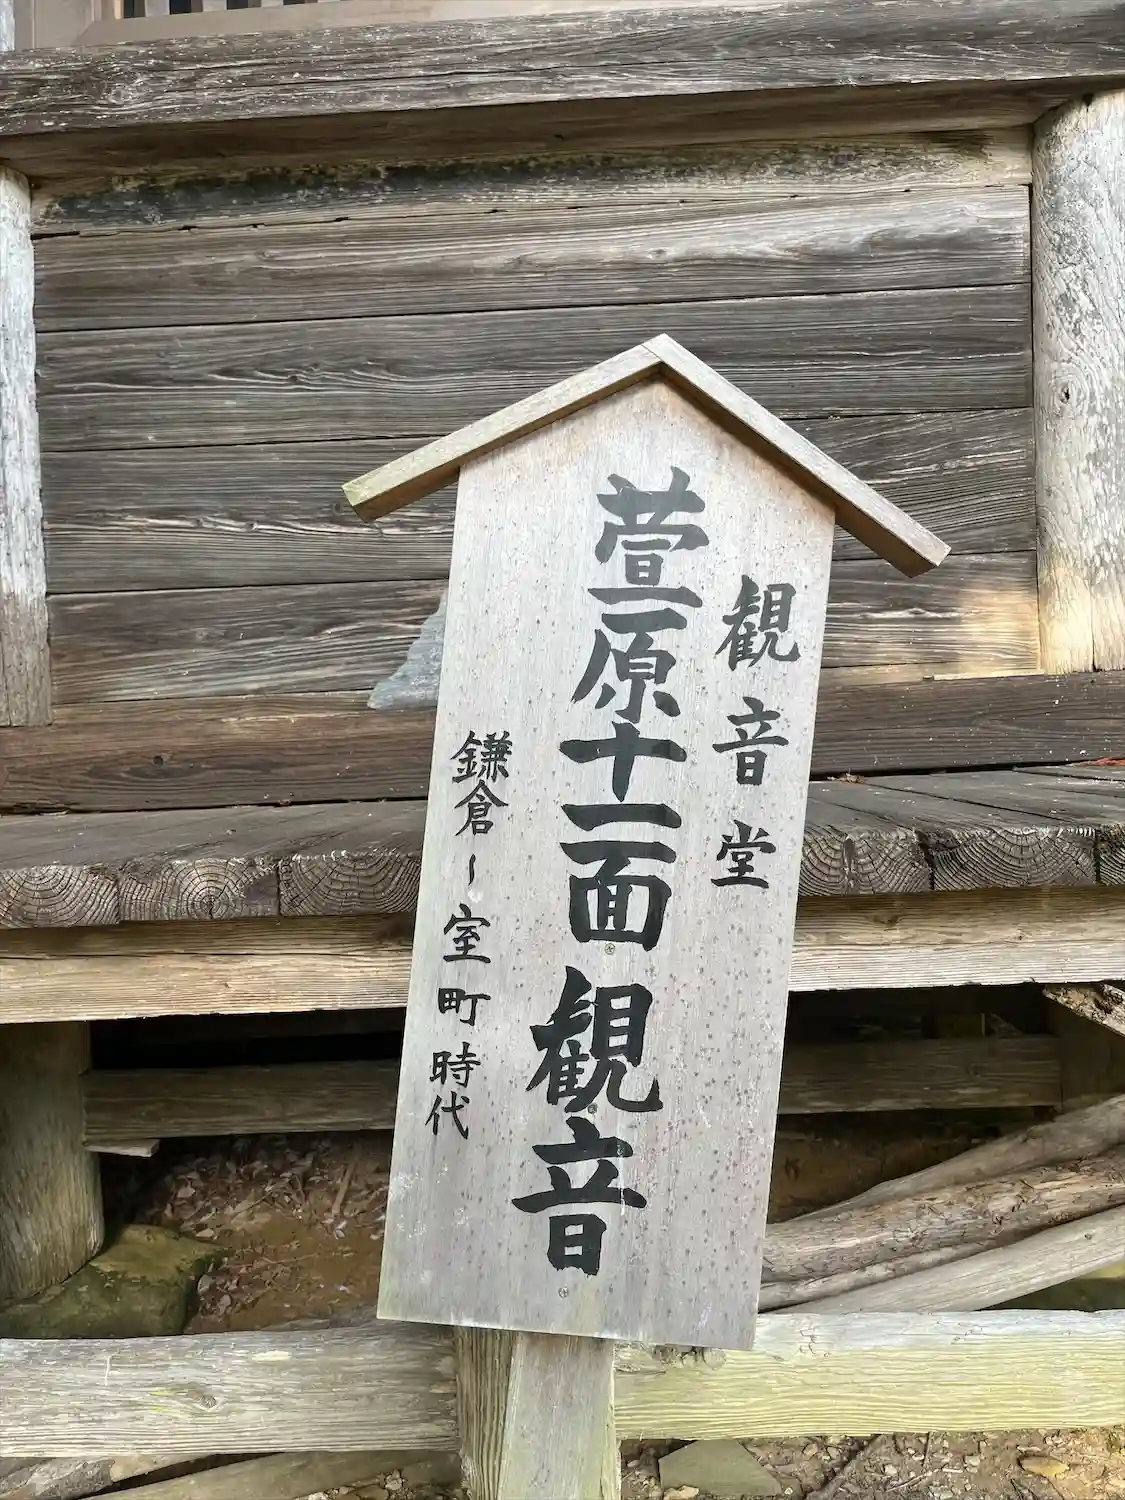 観音堂
萱原十一面観音
鎌倉~室町時代